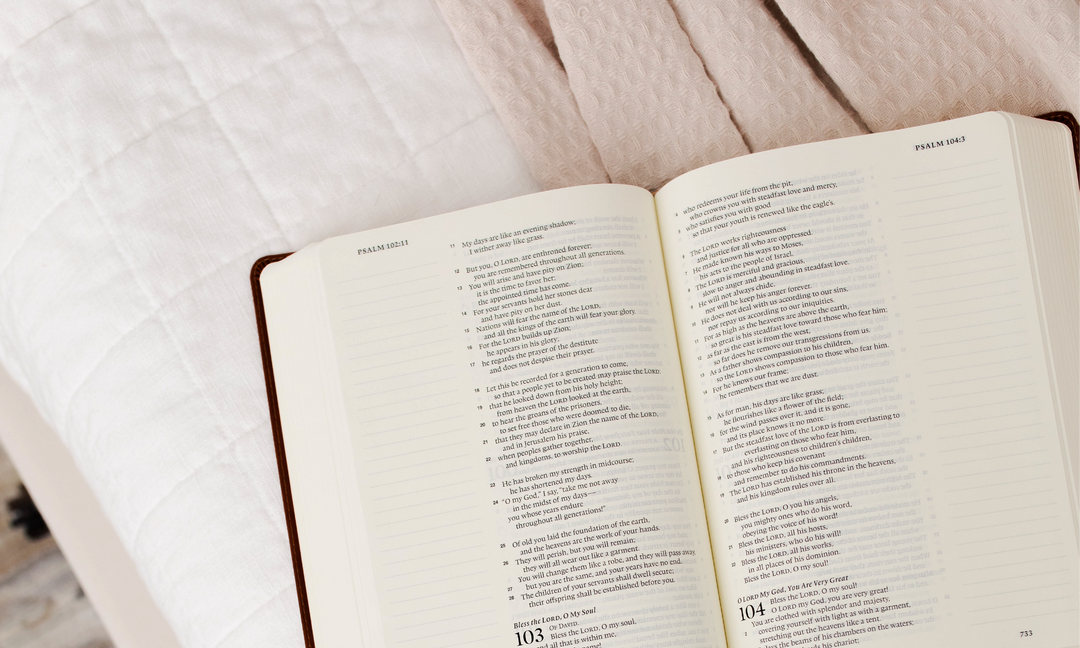 PSALM 102:11
11 My days are like an evening shadow;
I wither away like grass.
12 But you, O LORD, are enthroned forever;
you are remembered throughout all generations.
13 You will arise and have pity on Zion;
it is the time to favor her;
the appointed time has come.
14 For your servants hold her stones dear
and have pity on her dust.
15 Nations will fear the name of the LORD,
and all the kings of the earth will fear your glory.
16 For the LORD builds up Zion;
he appears in his glory;
17 he regards the prayer of the destitute
and does not despise their prayer.
18 Let this be recorded for a generation to come,
so that a people yet to be created may praise the LORD:
19 that he looked down from his holy height;
from heaven the LORD looked at the earth,
20 to hear the groans of the prisoners,
to set free those who were doomed to die,
21 that they may declare in Zion the name of the LORD,
and in Jerusalem his praise,
22 when peoples gather together,
and kingdoms, to worship the LORD.
23 He has broken my strength in midcourse;
he has shortened my days.
24 "O my God," I say, "take me not away
in the midst of my days—
you whose years endure
throughout all generations!"
25 Of old you laid the foundation of the earth,
and the heavens are the work of your hands.
26 They will perish, but you will remain;
they will all wear out like a garment.
You will change them like a robe, and they will pass away,
27 but you are the same, and your years have no end.
28 The children of your servants shall dwell secure;
their offspring shall be established before you.
Bless the LORD, O My Soul
103 OF DAVID.
Bless the LORD, O my soul,
and all that is within me,
name!
PSALM 104:3
4 who redeems your life from the pit,
who crowns you with steadfast love and mercy,
5 who satisfies you with good
so that your youth is renewed like the eagle's.
6 The LORD works righteousness
and justice for all who are oppressed.
7 He made known his ways to Moses,
his acts to the people of Israel.
8 The LORD is merciful and gracious,
slow to anger and abounding in steadfast love.
9 He will not always chide,
nor will he keep his anger forever.
10 He does not deal with us according to our sins,
nor repay us according to our iniquities.
11 For as high as the heavens are above the earth,
so great is his steadfast love toward those who fear him;
12 as far as the east is from the west,
so far does he remove our transgressions from us.
13 As a father shows compassion to his children,
so the LORD shows compassion to those who fear him.
14 For he knows our frame;
he remembers that we are dust.
15 As for man, his days are like grass;
he flourishes like a flower of the field;
16 for the wind passes over it, and it is gone,
and its place knows it no more.
17 But the steadfast love of the LORD is from everlasting to
everlasting on those who fear him,
and his righteousness to children's children,
18 to those who keep his covenant
and remember to do his commandments.
19 The LORD has established his throne in the heavens,
and his kingdom rules over all.
20 Bless the LORD, O you his angels,
you mighty ones who do his word,
obeying the voice of his word!
21 Bless the LORD, all his hosts,
his ministers, who do his will!
22 Bless the LORD, all his works,
in all places of his dominion.
Bless the LORD, O my soul!
O LORD My God, You Are Very Great
104 Bless the LORD, O my soul!
O LORD my God, you are very great!
You are clothed with splendor and majesty,
2 covering yourself with light as with a garment,
stretching out the heavens like a tent.
lays the beams of his chambers on the waters;
his chariot;
733